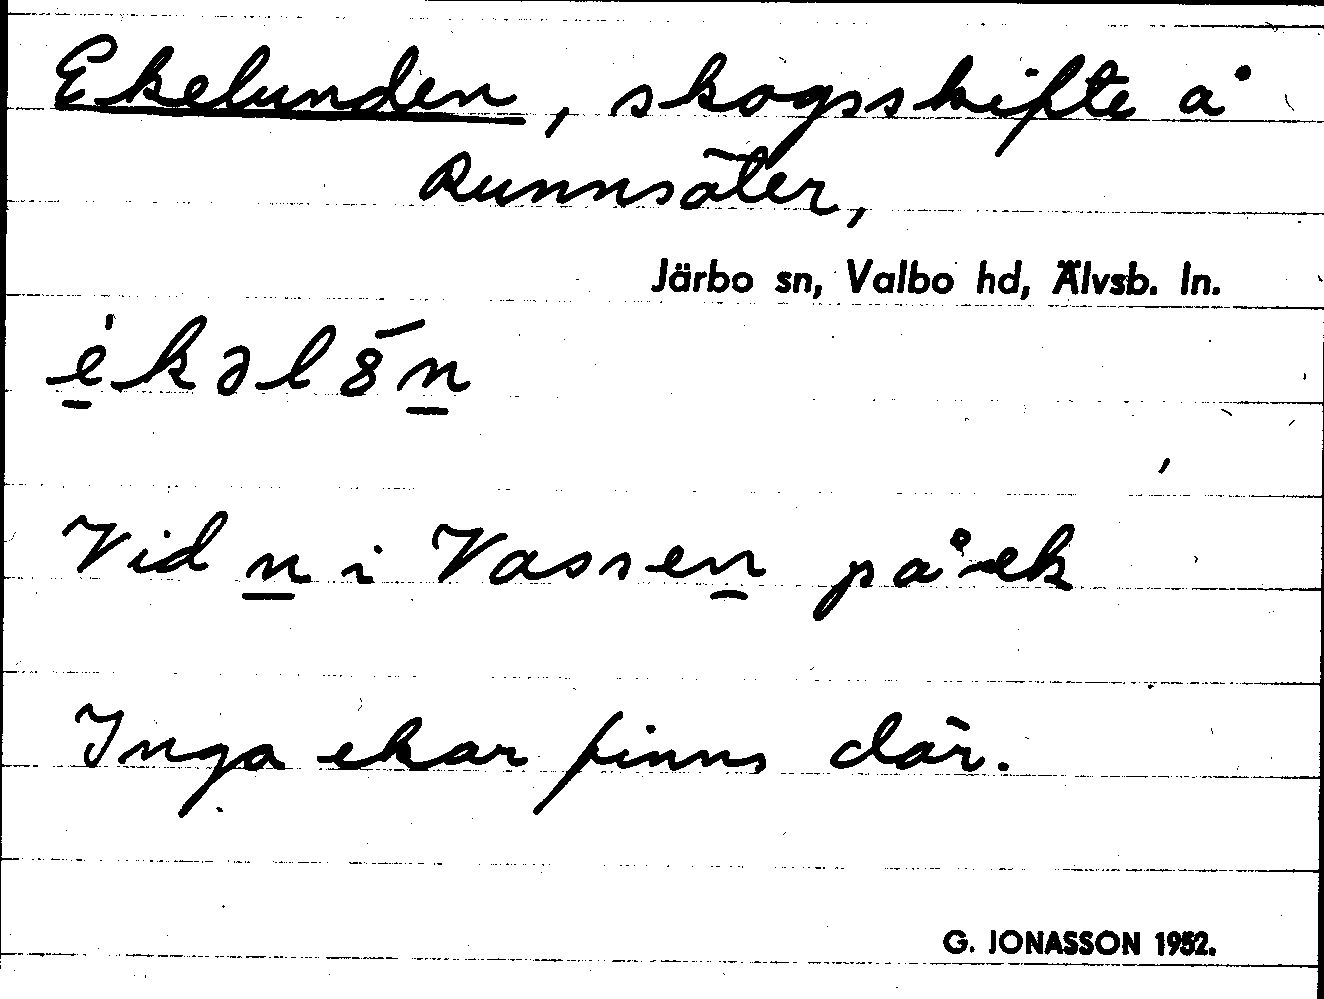 Ekelunden, skogsskifte å
Runnsäter,
Järbo sn, Valbo hd, Älvsb. ln.
ekəl8n
Vid n i Vassen på ek
Inga ekar finns där.
G. JONASSON 1952.